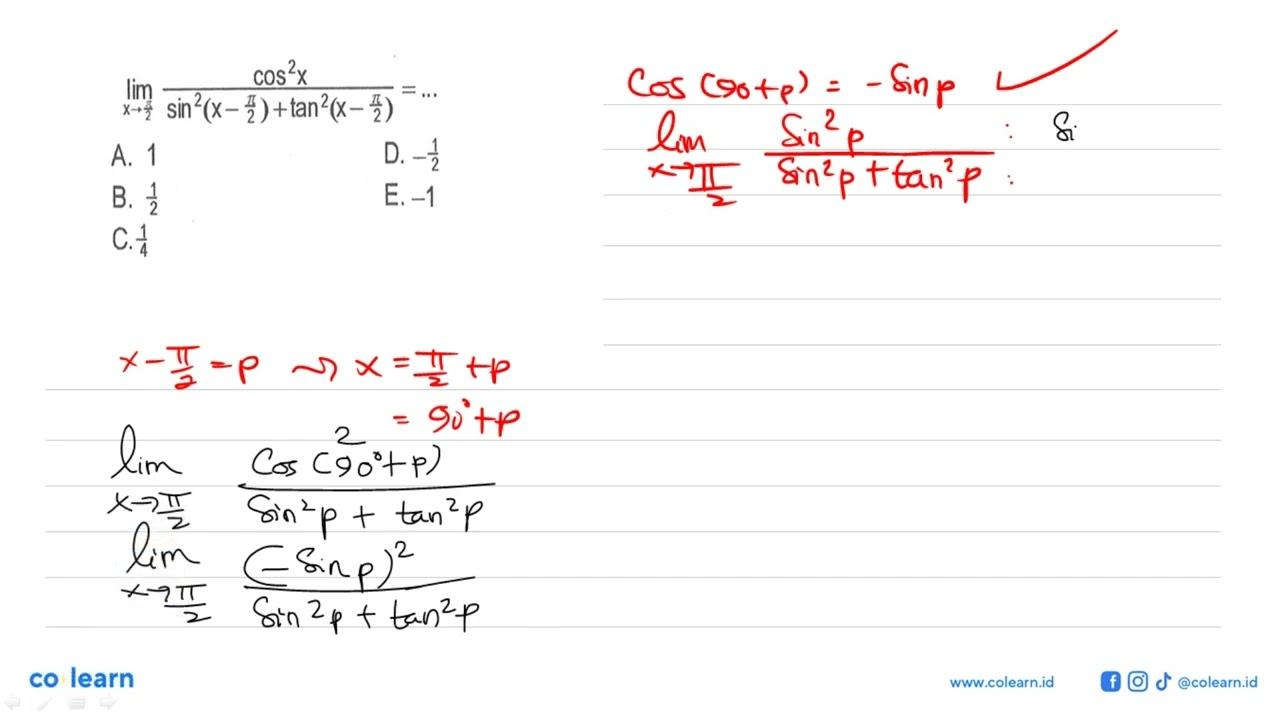 lim x→π/2 cos²x / sin²(x − π/2) + tan²(x − π/2) = ...
A. 1
B. 1/2
C. 1/4
D. −1/2
E. −1
x − π/2 = p ⇝ x = π/2 + p
= 90° + p
lim x→π/2 cos²(90° + p) / sin²p + tan²p
lim x→π/2 (− sin p)² / sin²p + tan²p
cos (90 + p) = − sin p ✓
lim x→π/2 sin²p / sin²p + tan²p : Si
:
co learn
www.colearn.id
@colearn.id